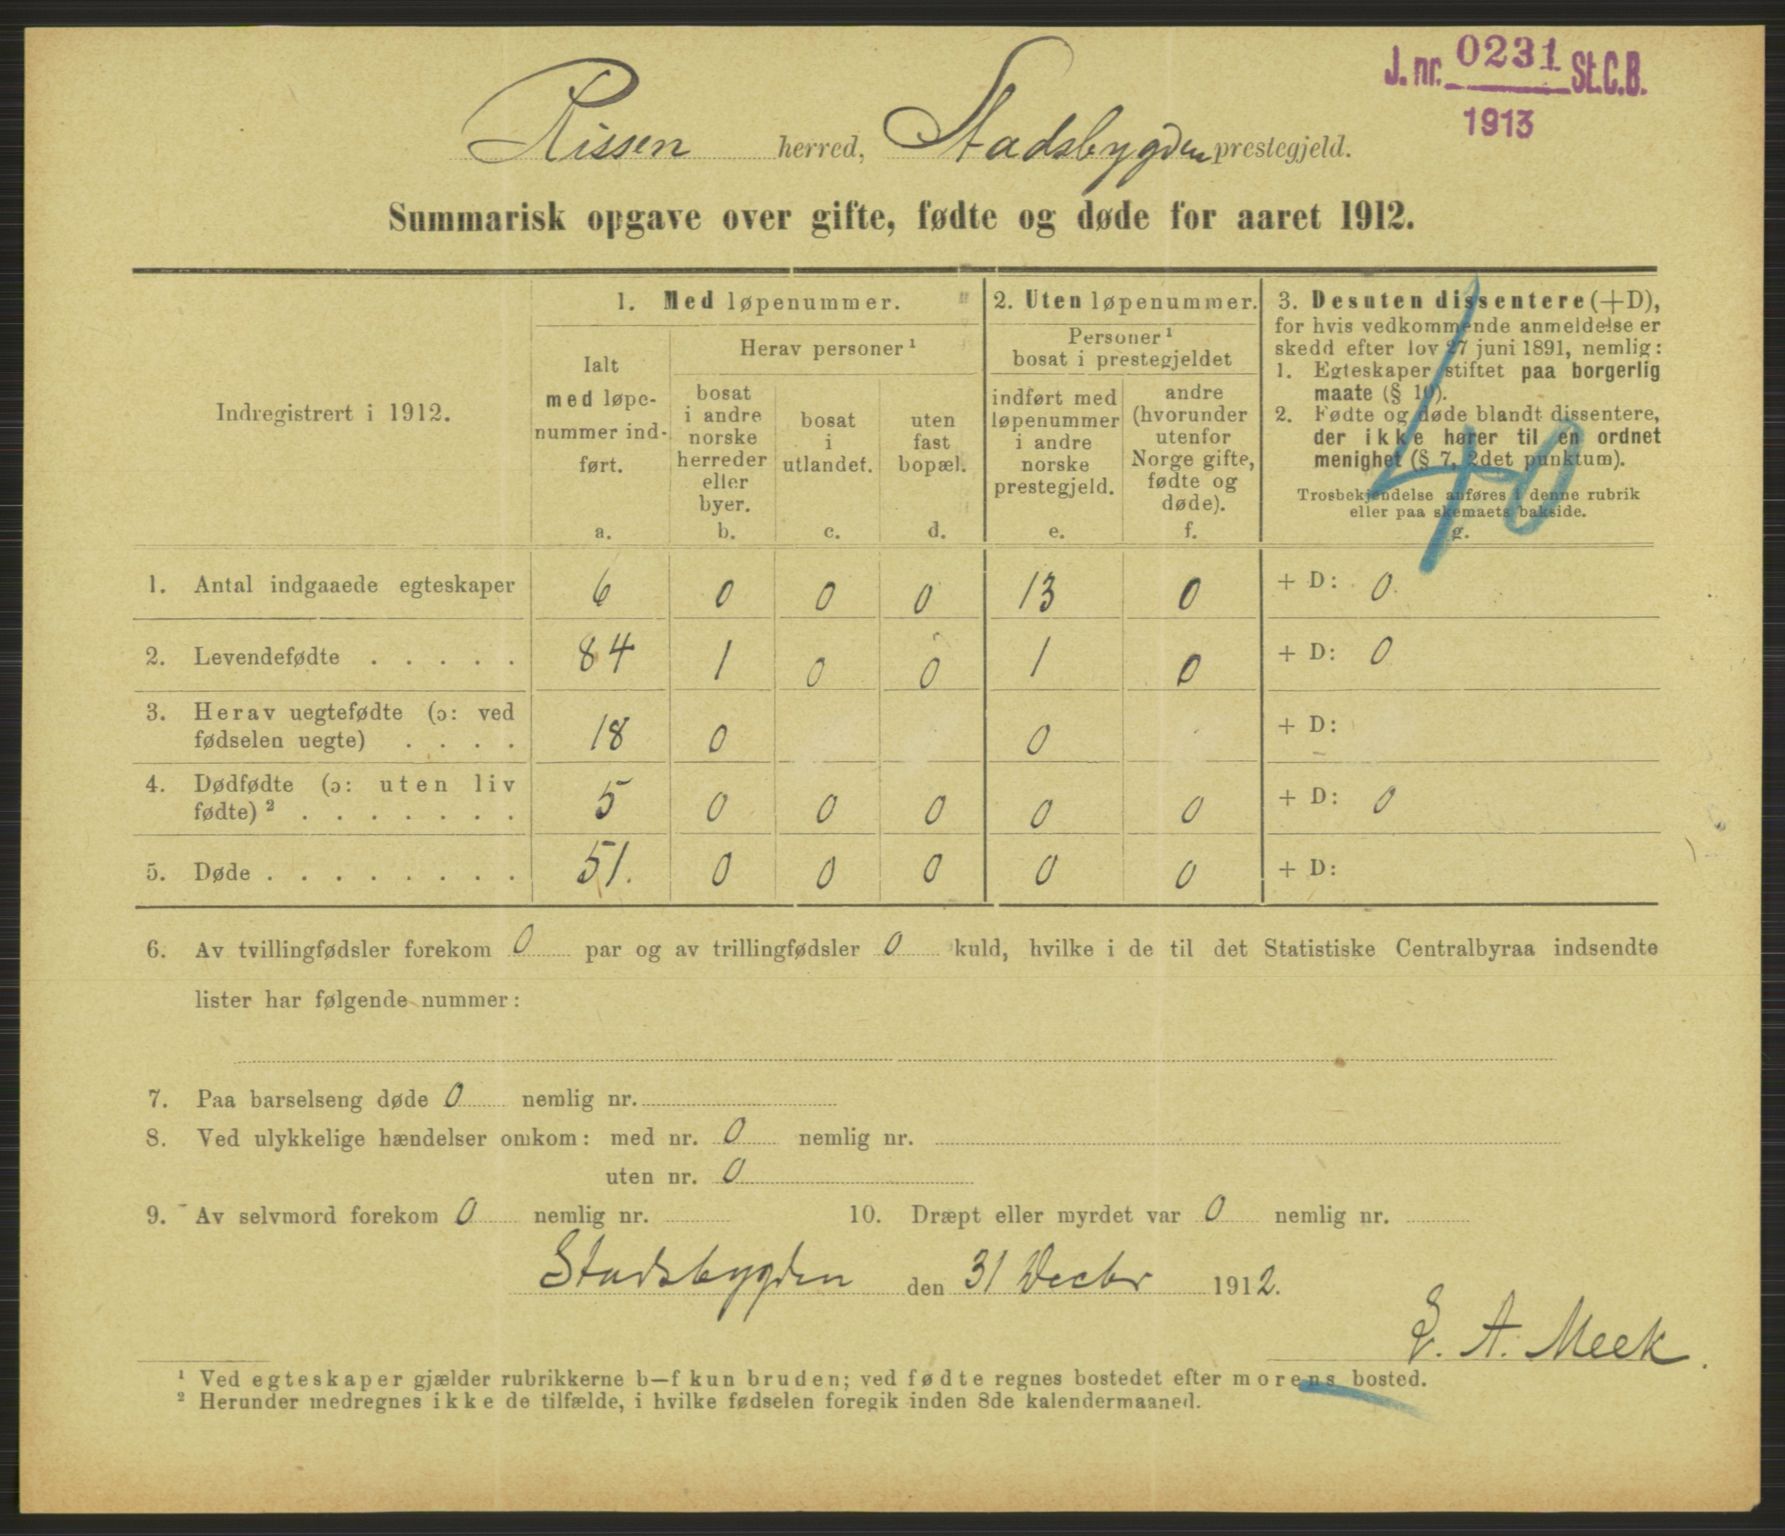 J. nr. 0231 St.C.B.
1913
Rissen herred, Stadsbygden prestegjeld.
Summarisk opgave over gifte, fødte og døde for aaret 1912.
Indregistrert i 1912.
1. Med løpenummer.
Ialt
med løpe-
nummer ind-
ført.
a.
Herav personer ¹
bosat
i andre
norske
herreder
eller
byer.
b.
bosat
i
utlandet.
c.
uten
fast
bopæl.
d.
2. Uten løpenummer.
Personer ¹
bosat i prestegjeldet
indført med
løpenummer
i andre
norske
prestegjeld.
e.
andre
(hvorunder
utenfor
Norge gifte,
fødte og
døde).
f.
3. Desuten dissentere (+D),
for hvis vedkommende anmeldelse er
skedd efter lov 27 juni 1891, nemlig:
1. Egteskaper stiftet paa borgerlig
maate (§ 10).
2. Fødte og døde blandt dissentere,
der ikke hører til en ordnet
menighet (§ 7, 2det punktum).
Trosbekjendelse anføres i denne rubrik
eller paa skemaets bakside.
g.
40
1. Antal indgaaede egteskaper 6 0 0 0 13 0 + D: 0.
2. Levendefødte . . . . . 84 1 0 0 1 0 + D: 0
3. Herav uegtefødte (ɔ: ved
fødselen uegte) . . . . 18 0 0 + D:
4. Dødfødte (ɔ: uten liv
fødte) ² . . . . . . . 5 0 0 0 0 0 + D: 0
5. Døde . . . . . . . . 51. 0 0 0 0 0 + D:
6. Av tvillingfødsler forekom 0 par og av trillingfødsler 0 kuld, hvilke i de til det Statistiske Centralbyraa indsendte
lister har følgende nummer:
7. Paa barselseng døde 0 nemlig nr.
8. Ved ulykkelige hændelser omkom: med nr. 0 nemlig nr.
uten nr. 0
9. Av selvmord forekom 0 nemlig nr. 10. Dræpt eller myrdet var 0 nemlig nr.
Stadsbygden den 31 Decbr 1912.
A. Meek.
¹ Ved egteskaper gjælder rubrikkerne b—f kun bruden; ved fødte regnes bostedet efter morens bosted.
² Herunder medregnes ikke de tilfælde, i hvilke fødselen foregik inden 8de kalendermaaned.